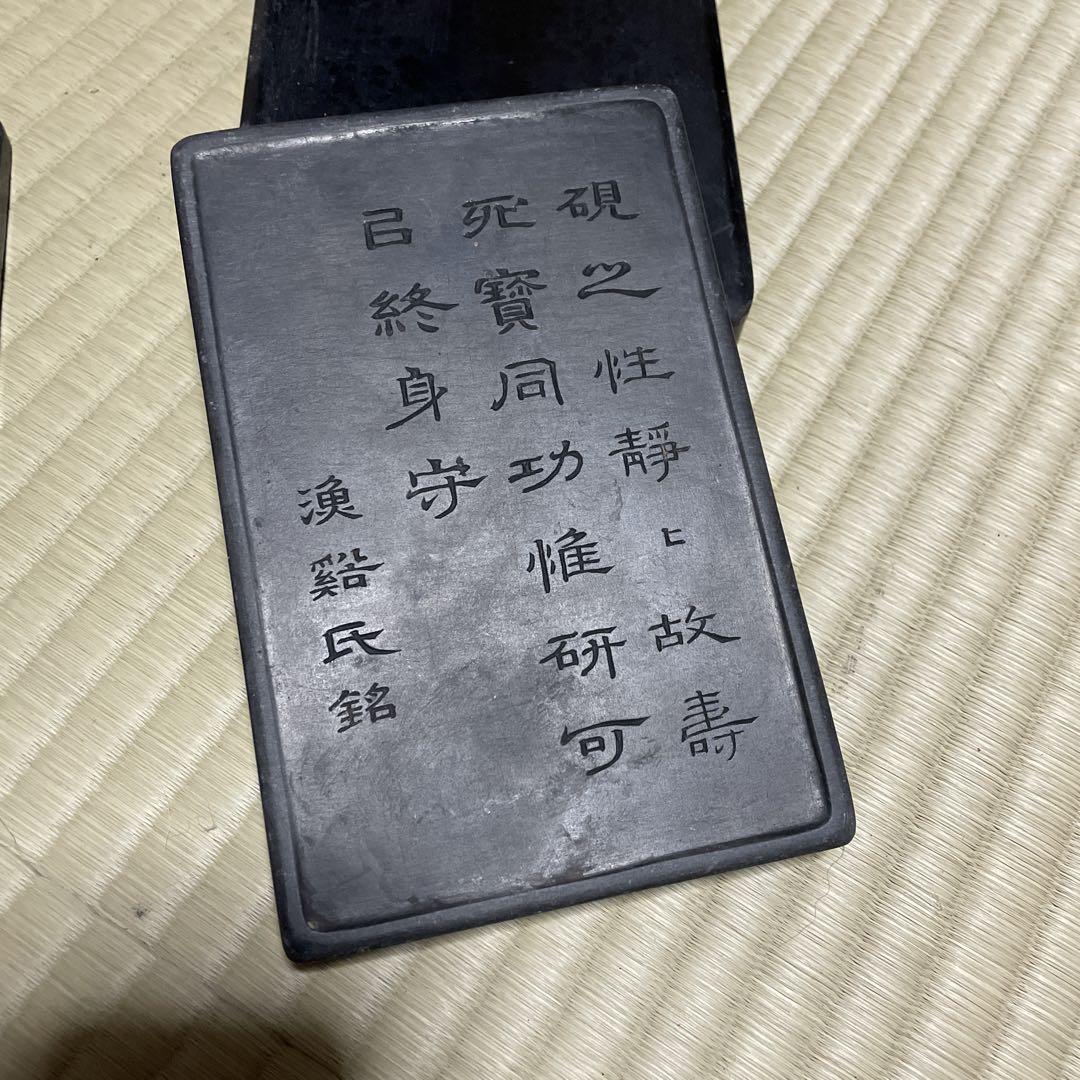 硯之性靜〻故壽
死寶同功惟研可
㠯終身守
漁谿氏銘